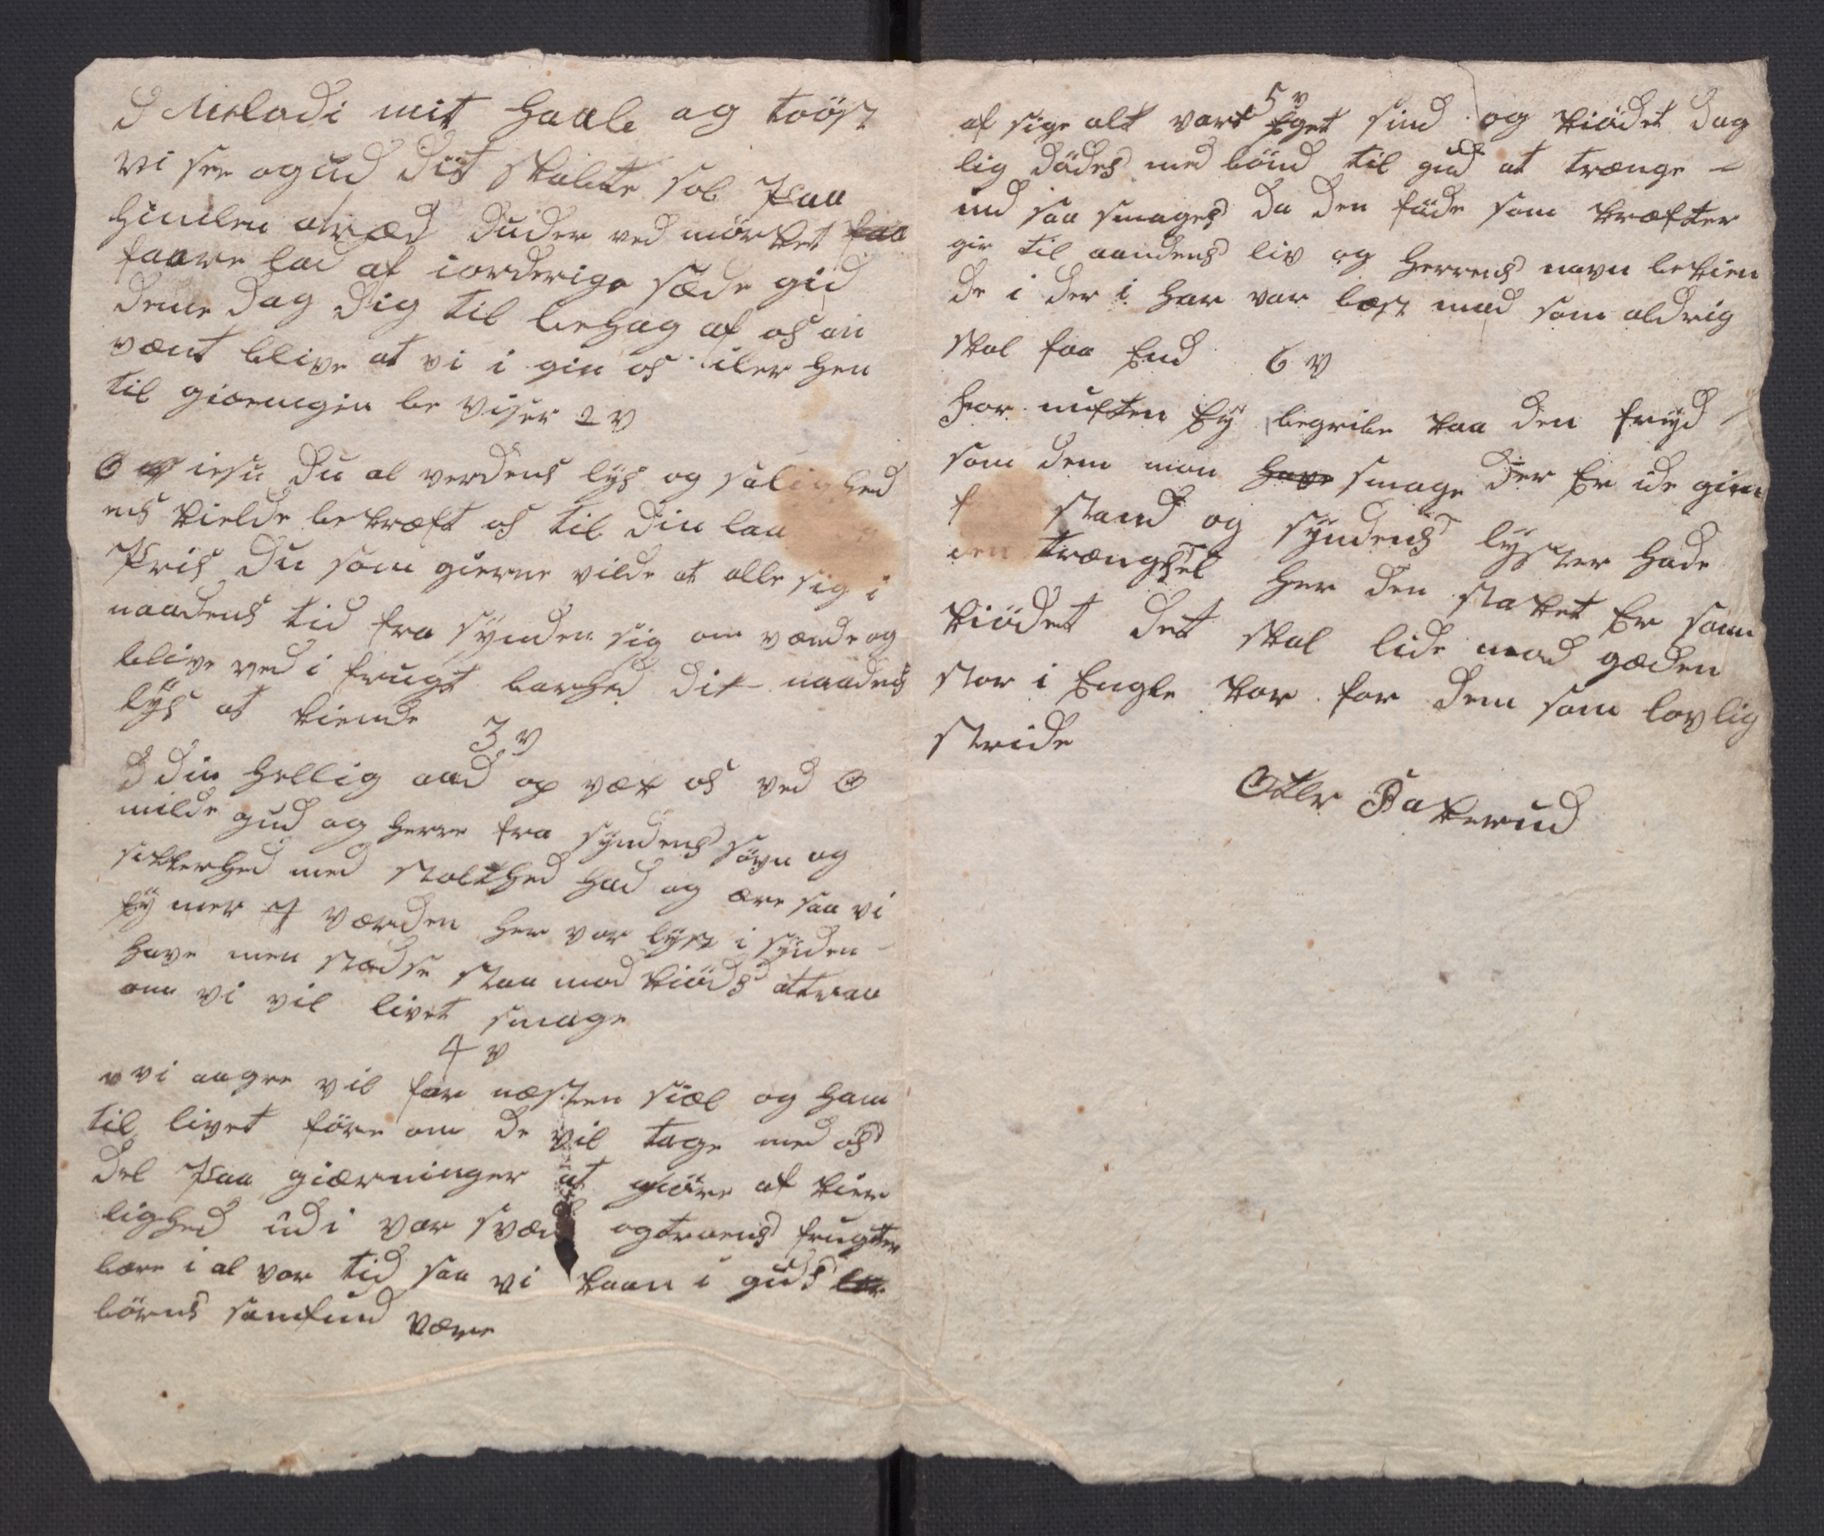 Melodi mit Haab og tröst
vi see o gud dit skabte sol Paa
himlen a ned du der ved mörket
faare lad af iorderige sæde gid
dene dag dig til behag af os an
vent blive at vi i gin os iler hen
til giærnigen be viser 2 V
O iesu du al verdens lys og salighed
ens kielde bekræft os til din
Pris du som gierne vilde at alle sig i
naadens tid fra synden sig om vænde og
blive ved i frugt barhed dit naadens
lys at kiende
3 v
din hellig aad op væk os ved O
milde gud og herre fra syndens sövn og
sikkerhed med stolthed had og ære saa vi
Ey mer af værden her vor lyst i syden
have men stædse staa mod kiöds attraa
om vi vil livet smage
4 v
vi aagre vil for næsten siæl og ham
til livet före om de vil tage med os
del Paa giærninger at giöre af kier
lighed ud i vor svæd og troens frugter
bære i al vor tid saa vi kaan i guds
börns samfund være
5 v
af sige alt vort Eget sind og kiödet dag
lig dödes med bönd til gud at trænge
ind saa smages da den föde som kræfter
gir til aandens liv og Herrens navn bekien
de i der i har vor læst mad som aldrig
skal faa End
6 v
for nuften Ey begribe kaa den fryd
som dem mon have smage der Er ide gien
stand og syndens lyster hade
den trængsel her den staket Er som
kiödet det skal lide mod gæden
stor i Engle kor for dem som lovlig
stride
Ole Bakerud